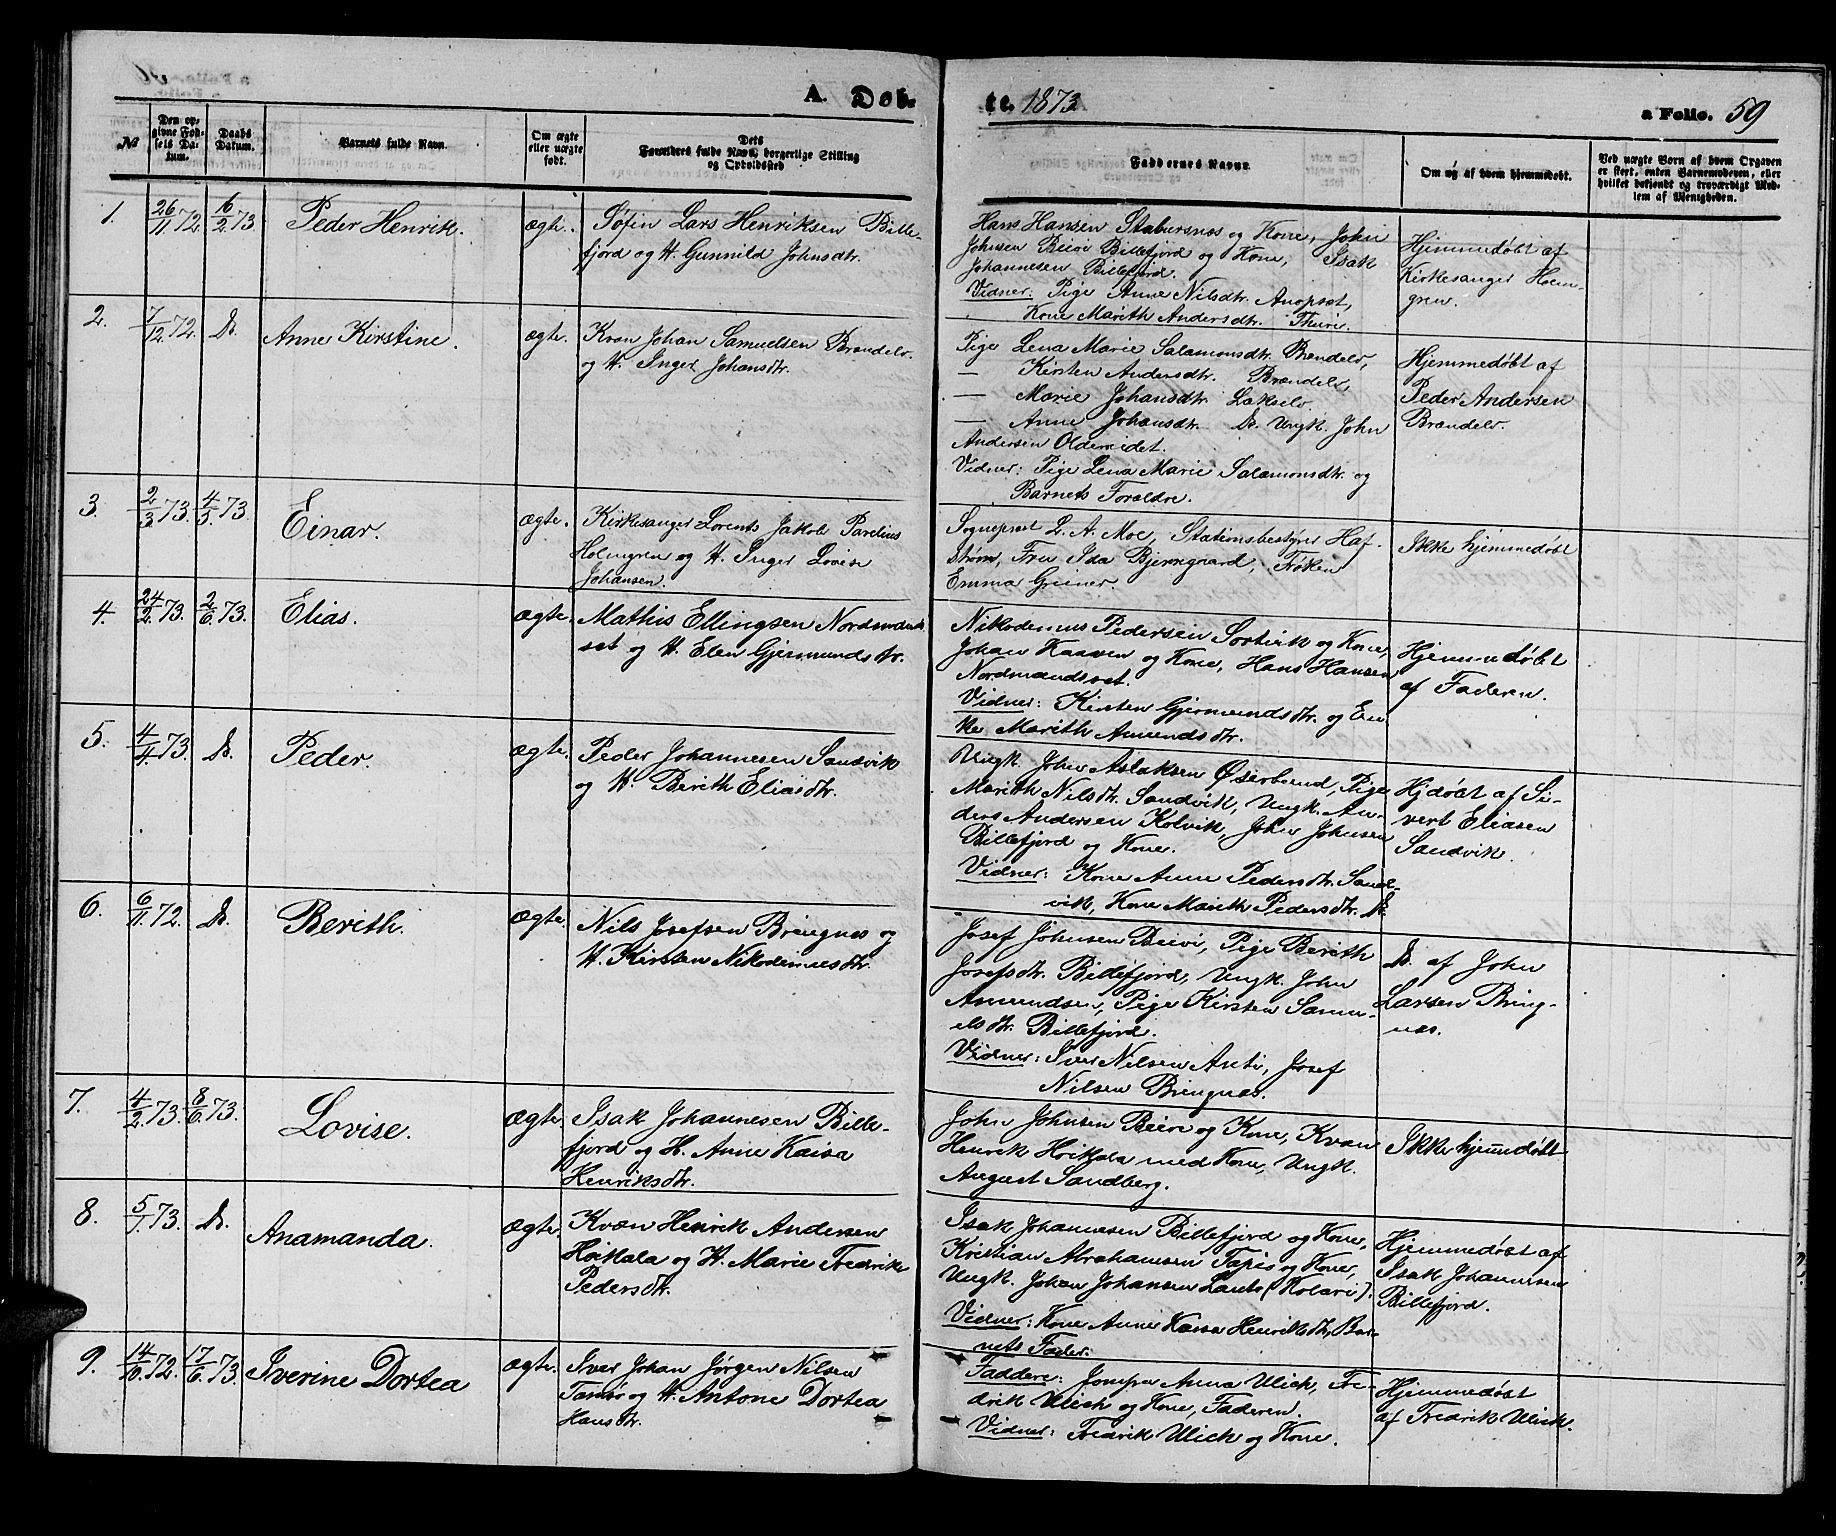 A. Døb-
te. 1873
a Folio. 59
№
Den op-
givne Fød-
sels Da-
tum.
Daabs
Datum.
Barnets fulde Navn.
Om ægte
eller uægte
født.
Dets
Forældres fulde Navn, borgerlige Stilling
og Opholdssted
Faddernes Navne.
Om og af hvem hjemmedøbt.
Ved uægte Børn af hvem Opgaven
er skeet, enten Barnemoderen, eller
hvilket bekjendt og troværdigt Med-
lem af Menigheden.
1.
26/11 72.
16/2 73.
Peder Henrik.
ægte.
Søfin Lars Henriksen Bille-
fjord og H. Gunnild Johnsdtr.
Hans Hansen Stabursnes og Kone, John
Johnsen Beivi Billefjord og Kone, Isak
Johannesen Billefjord.
Vidner: Pige Anne Nilsdtr. Anopset,
Kone Marith Andersdtr. Thuri.
Hjemmedøbt af
Kirkesanger Holm-
gren.
2.
7/12 72.
D.
Anne Kirstine.
ægte.
Kvæn Johan Samuelsen Brændelv
og H. Inger Johansdtr.
Pige Lena Marie Salamonsdtr. Brændelv,
— Kirsten Andersdtr. Brændelv,
— Marie Johansdtr. Lakselv.
— Anne Johansdtr. D. Ungk. John
Andersen Oldereidet.
Vidner: Pige Lena Marie Salamonsdtr. og
Barnets Forældre.
Hjemmedøbt af
Peder Andersen
Brændelv.
3.
2/3 73.
4/5 73.
Einar.
Ægte.
Kirkesanger Lorents Jakob Parelius
Holmgren og H. Inger Lovise
Johansen.
Sogneprest L. A. Moe, Stationsbestyrer Haf-
strøm, Fru Ida Bjerregaard, Frøken
Emma Greiner.
Ikke hjemmedøbt
4.
24/2 73.
2/6 73.
Elias.
ægte.
Mathis Ellingsen Nordmands-
set og H. Elen Gjermundsdtr.
Nikodemus Pedersen Sortvik og Kone,
Johan Kaaven og Kone, Hans Hansen
Nordmandsset.
Vidner: Kirsten Gjermundsdtr. og En-
ke Marith Amundsdtr.
Hjemmedøbt
af Faderen.
5.
4/4 73.
D.
Peder.
ægte.
Peder Johannesen Sandvik
og H. Berith Eliasdtr.
Ungk. John Aslaksen Østerbund, Pige
Marith Nilsdtr. Sandvik, Ungk. An-
ders Andersen Kolvik, John Johnsen
Billefjord og Kone.
Vidner: Kone Anne Pedersdtr. Sand-
vik, Kone Marith Pedersdtr. D.
Hjdøbt af Si-
vert Eliasen
Sandvik.
6.
6/11 72.
D.
Berith.
ægte.
Nils Josefsen Bringnes og
H. Kirsten Nikodemusdtr.
Josef Johnsen Beivi, Pige Berith
Josefsdtr. Billefjord, Ungk. John
Amundsen, Pige Kirsten Samu-
elsdtr. Billefjord.
Vidner: Iver Nilsen Anti, Josef
Nilsen Bringnes.
D. af John
Larsen Bring-
nes.
7.
4/2 73.
8/6 73.
Lovise.
ægte.
Isak Johannesen Bille-
fjord og H. Anne Kaisa
Henriksdtr.
John Johnsen Beivi og Kone, Kvæn
Henrik Hoikkala med Kone, Ungk.
August Sandberg.
Ikke hjemmdøbt
8.
5/1 73.
D.
Anamanda.
Ægte.
Kvæn Henrik Andersen
Hoikkala og H. Marie Fredrike
Pedersdtr.
Isak Johannesen Billefjord og Kone,
Kristian Abrahamsen Tapio og Kone,
Ungk. Johan Johansen Lanto (Kolari).
Vidner: Kone Anne Kaisa Henriksdtr, Bar-
nets Fader.
Hjemmedøbt af
Isak Johannesen
Billefjord.
9.
14/10 72.
17/6 73.
Iverine Dortea
ægte.
Iver Johan Jørgen Nilsen
Tamsø og H. Antone Dortea
Hansdtr.
Faddere: Jomfru Anna Ulich, Fre-
drik Ulich og Kone, Faderen.
Vidner: Fredrik Ulich og Kone.
Hjemmedøbt
af Fredrik Ulich.